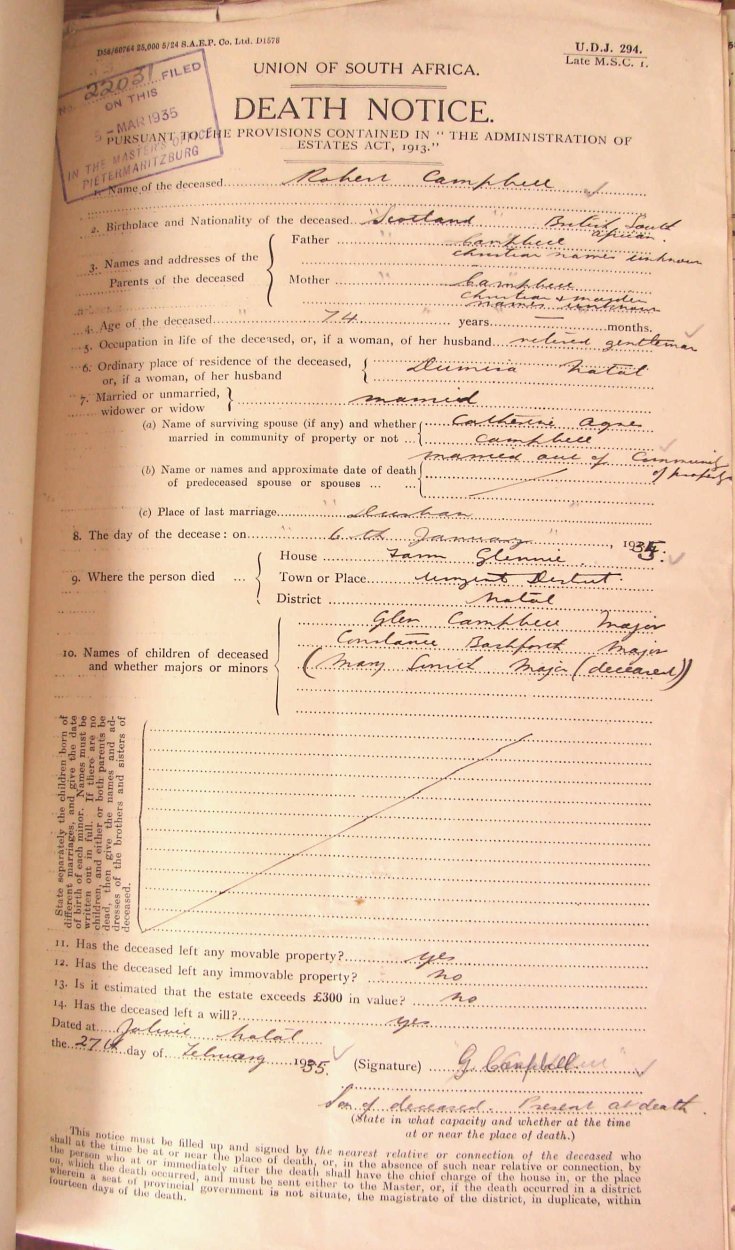 D56/60764 25,000 5/24 S.A.E.P. Co. Ltd. D1578
U.D.J. 294.
Late M.S.C. 1.
No. 22031 FILED
ON THIS
5 - MAR 1935
IN THE MASTER'S OFFICE
PIETERMARITZBURG
UNION OF SOUTH AFRICA.
DEATH NOTICE.
PURSUANT TO THE PROVISIONS CONTAINED IN "THE ADMINISTRATION OF
ESTATES ACT, 1913."
1. Name of the deceased Robert Campbell
2. Birthplace and Nationality of the deceased Scotland British South
African.
3. Names and addresses of the Parents of the deceased
Father Campbell
christian names unknown
Mother Campbell
christian & mayden
names unknown
4. Age of the deceased 74 years — months.
5. Occupation in life of the deceased, or, if a woman, of her husband retired gentleman
6. Ordinary place of residence of the deceased, or, if a woman, of her husband Dumisa Natal
7. Married or unmarried, widower or widow married
(a) Name of surviving spouse (if any) and whether Catherine Agnes
married in community of property or not Campbell
married out of Community
of property
(b) Name or names and approximate date of death
of predeceased spouse or spouses
(c) Place of last marriage Durban
8. The day of the decease: on 6th January, 1935.
9. Where the person died
House Farm Glennie.
Town or Place District.
District Natal
10. Names of children of deceased and whether majors or minors
Glen Campbell Major
Constance Bashforth Major
(Mary Smith Major (deceased))
State separately the children born of
different marriages, and give the date
of birth of each minor. Names must be
written out in full. If there are no
children, and either or both parents be
dead, then give the names and ad-
dresses of the brothers and sisters of
deceased.
11. Has the deceased left any movable property? yes
12. Has the deceased left any immovable property? no
13. Is it estimated that the estate exceeds £300 in value? no
14. Has the deceased left a will? yes
Dated at Natal
the 27th day of February 1935.
(Signature) G. Campbell
Son of deceased. Present at death.
(State in what capacity and whether at the time
at or near the place of death.)
This notice must be filled up and signed by the nearest relative or connection of the deceased who
shall at the time be at or near the place of death, or, in the absence of such near relative or connection, by
the person who at or immediately after the death shall have the chief charge of the house in, or the place
on, which the death occurred, and must be sent either to the Master, or, if the death occurred in a district
wherein a seat of provincial government is not situate, the magistrate of the district, in duplicate, within
fourteen days of the death.